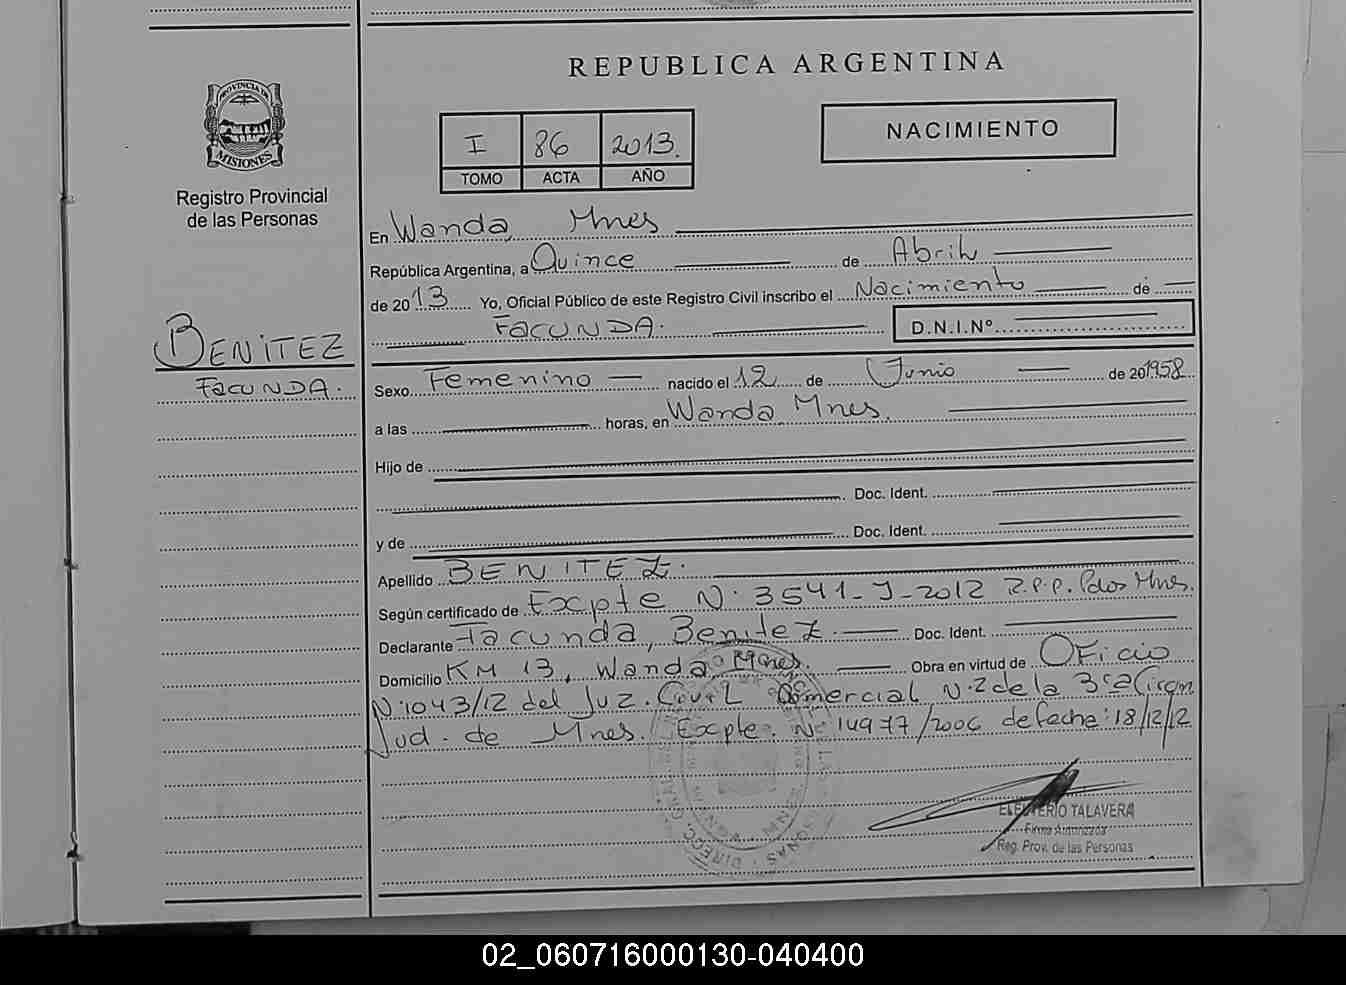 REPUBLICA ARGENTINA
PROVINCIA DE
MISIONES
Registro Provincial
de las Personas
I 86 2013.
TOMO ACTA AÑO
NACIMIENTO
En Wanda, Mnes
República Argentina, a Quince de Abril
de 2013 Yo, Oficial Público de este Registro Civil inscribo el Nacimiento de
FACUNDA. D.N.I.Nº
BENITEZ
FACUNDA.
Sexo Femenino nacido el 12 de Junio de 201958
a las horas, en Wanda Mnes.
Hijo de
Doc. Ident.
y de Doc. Ident.
Apellido BENITEZ.
Según certificado de Expte N. 3541-J-2012 R.P.P. Pdas Mnes.
Declarante Facunda, Benitez. Doc. Ident.
Domicilio KM 13, Wanda Mnes. Obra en virtud de Oficio
N. 1043/12 del Juz. Civil Comercial N. 2 de la 3ra Circun
Jud. de Mnes. Expte. N 14977/2006 de fecha: 18/12/12
ELEUTERIO TALAVERA
Firma Autorizada
Reg. Prov. de las Personas
02_060716000130-040400